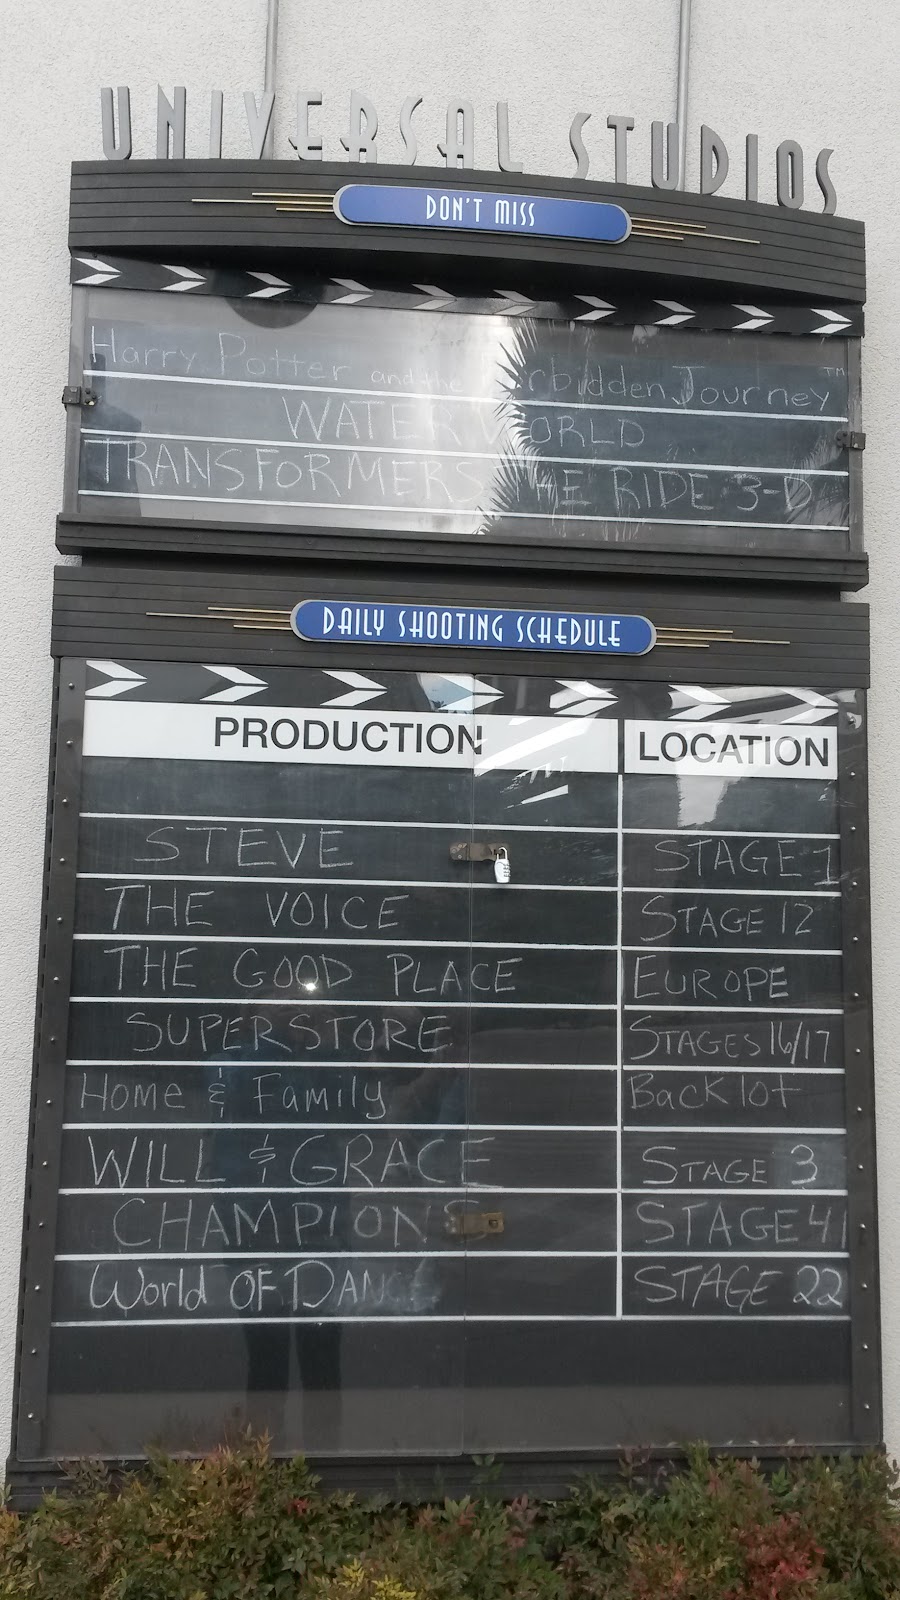 UNIVERSAL STUDIOS
DON'T MISS
Harry Potter and the Forbidden Journey™
WATERWORLD
TRANSFORMERS THE RIDE 3-D
DAILY SHOOTING SCHEDULE
PRODUCTION LOCATION
STEVE STAGE 1
THE VOICE STAGE 12
THE GOOD PLACE EUROPE
SUPERSTORE STAGES 16/17
Home & Family Backlot
WILL & GRACE STAGE 3
CHAMPIONS STAGE 41
World OF DANCE STAGE 22